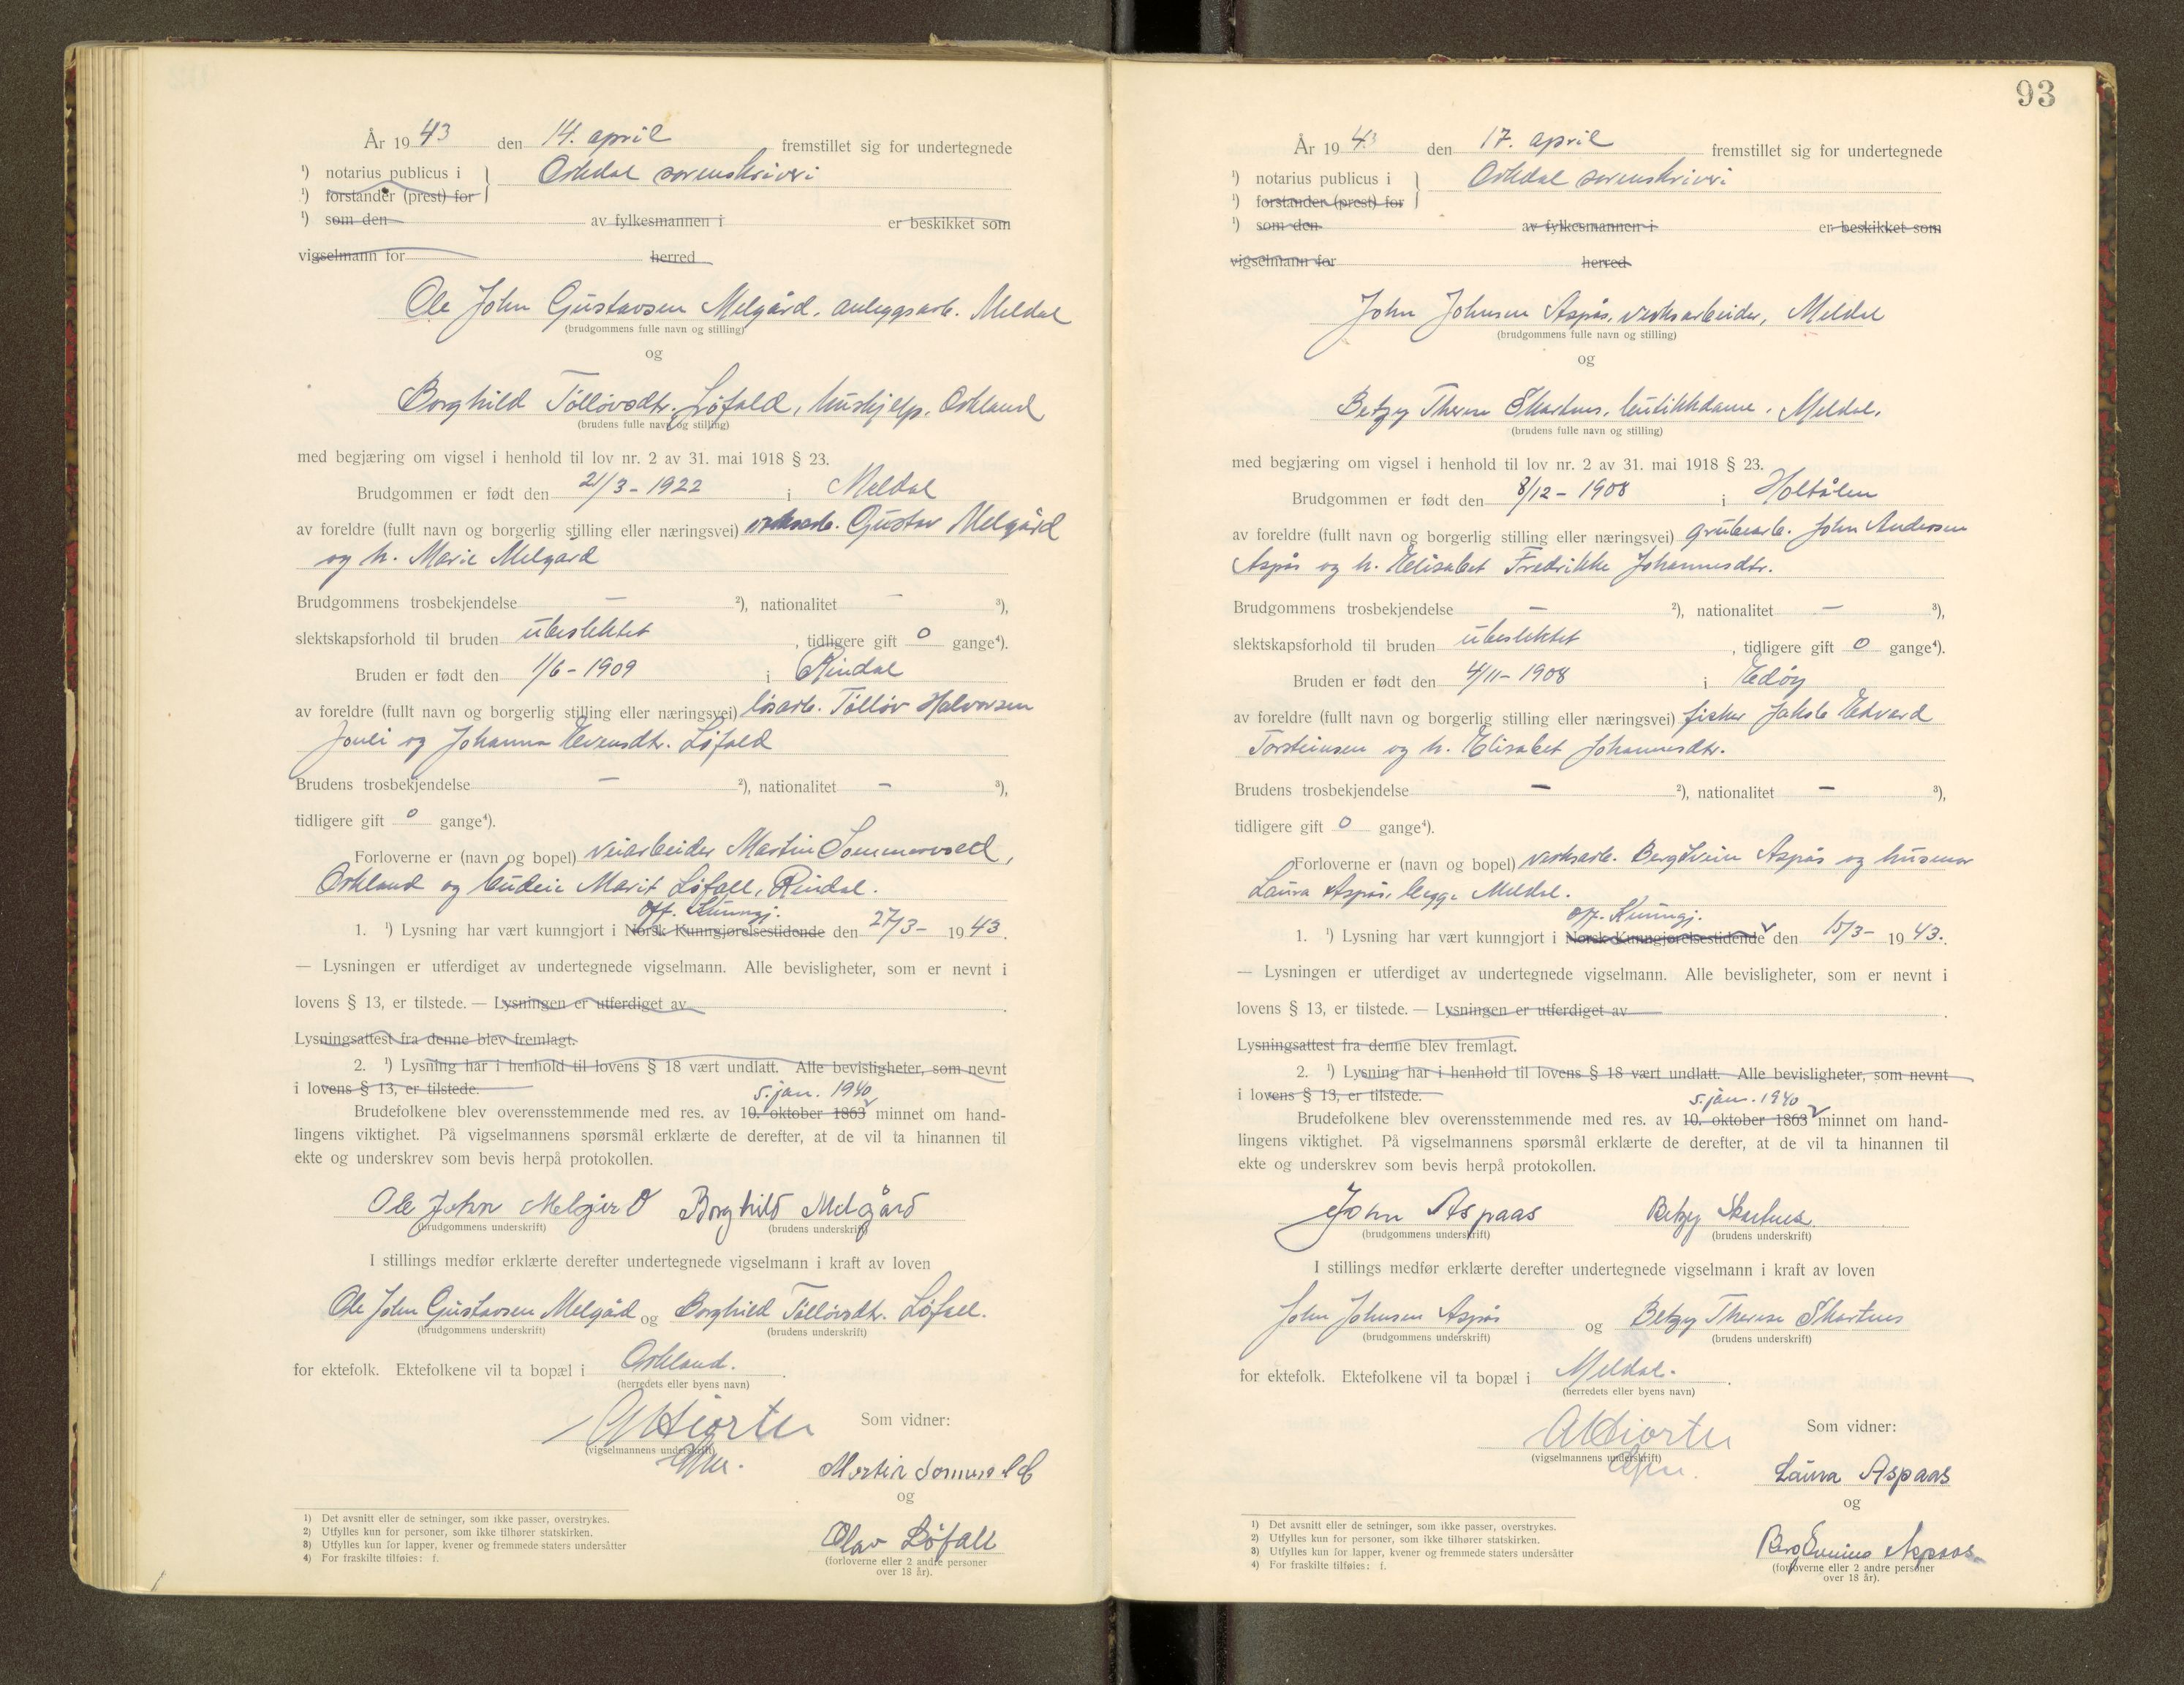 År 1943 den 14. april fremstillet sig for undertegnede
¹) notarius publicus i } Orkdal sorenskriveri
¹) forstander (prest) for
¹) som den av fylkesmannen i er beskikket som
vigselmann for herred
Ole John Gustavsen Melgård, anleggsarb. Meldal
(brudgommens fulle navn og stilling)
og
Borghild Tølløvsdtr. Løfald, hushjelp, Orkland
(brudens fulle navn og stilling)
med begjæring om vigsel i henhold til lov nr. 2 av 31. mai 1918 § 23.
Brudgommen er født den 21/3 - 1922 i Meldal
av foreldre (fullt navn og borgerlig stilling eller næringsvei) verksarb. Gustav Melgård
og h. Marie Melgård
Brudgommens trosbekjendelse — ²), nationalitet — ³),
slektskapsforhold til bruden ubeslektet, tidligere gift 0 gange⁴).
Bruden er født den 1/6 - 1909 i Rindal
av foreldre (fullt navn og borgerlig stilling eller næringsvei) løsarb. Tølløv Halvorsen
og Johanna Evensdtr. Løfald
Brudens trosbekjendelse — ²), nationalitet — ³),
tidligere gift 0 gange⁴).
Forloverne er (navn og bopel) veiarbeider Martin
Orkland og budeie Marit Løfall, Rindal.
off. Kunngj.
1. ¹) Lysning har vært kunngjort i Norsk Kunngjørelsestidende den 27/3 - 1943.
— Lysningen er utferdiget av undertegnede vigselmann. Alle bevisligheter, som er nevnt i
lovens § 13, er tilstede. — Lysningen er utferdiget av
Lysningsattest fra denne blev fremlagt.
2. ¹) Lysning har i henhold til lovens § 18 vært undlatt. Alle bevisligheter, som nevnt
i lovens § 13, er tilstede.
5. jan. 1940
Brudefolkene blev overensstemmende med res. av 10. oktober 1863 minnet om hand-
lingens viktighet. På vigselmannens spørsmål erklærte de derefter, at de vil ta hinannen til
ekte og underskrev som bevis herpå protokollen.
Ole John Melgård Borghild Melgård
(brudgommens underskrift) (brudens underskrift)
I stillings medfør erklærte derefter undertegnede vigselmann i kraft av loven
Ole John Gustavsen Melgåd og Borghild Tølløvsdtr. Løfall.
(brudgommens underskrift) (brudens underskrift)
for ektefolk. Ektefolkene vil ta bopæl i Orkland.
(herredets eller byens navn)
Som vidner:
(vigselmannens underskrift)
Martin
og
Olav Løfall
(forloverne eller 2 andre personer
over 18 år).
1) Det avsnitt eller de setninger, som ikke passer, overstrykes.
2) Utfylles kun for personer, som ikke tilhører statskirken.
3) Utfylles kun for lapper, kvener og fremmede staters undersåtter
4) For fraskilte tilføies: f.
93
År 1943 den 17. april fremstillet sig for undertegnede
¹) notarius publicus i } Orkdal sorenskriveri
¹) forstander (prest) for
¹) som den av fylkesmannen i er beskikket som
vigselmann for herred
John Johnsen Aspås, verksarbeider, Meldal
(brudgommens fulle navn og stilling)
og
Betzy Therese Skartnes, butikkdame, Meldal.
(brudens fulle navn og stilling)
med begjæring om vigsel i henhold til lov nr. 2 av 31. mai 1918 § 23.
Brudgommen er født den 8/12 - 1908 i Holtålen
av foreldre (fullt navn og borgerlig stilling eller næringsvei) grubearb. John Andersen
Aspås og h. Elisabet Fredrikke Johannesdtr.
Brudgommens trosbekjendelse — ²), nationalitet — ³),
slektskapsforhold til bruden ubeslektet, tidligere gift 0 gange⁴).
Bruden er født den 4/11 - 1908 i Edøy
av foreldre (fullt navn og borgerlig stilling eller næringsvei) fisker Jakob Edvard
Torsteinsen og h. Elisabet Johannesdtr.
Brudens trosbekjendelse — ²), nationalitet — ³),
tidligere gift 0 gange⁴).
Forloverne er (navn og bopel) verksarb. Bergsvein Aspås og husmor
Laura Aspås, begge Meldal.
off. Kunngj.
1. ¹) Lysning har vært kunngjort i Norsk Kunngjørelsestidende den 15/3 - 1943.
— Lysningen er utferdiget av undertegnede vigselmann. Alle bevisligheter, som er nevnt i
lovens § 13, er tilstede. — Lysningen er utferdiget av
Lysningsattest fra denne blev fremlagt.
2. ¹) Lysning har i henhold til lovens § 18 vært undlatt. Alle bevisligheter, som nevnt
i lovens § 13, er tilstede.
5. jan. 1940
Brudefolkene blev overensstemmende med res. av 10. oktober 1863 minnet om hand-
lingens viktighet. På vigselmannens spørsmål erklærte de derefter, at de vil ta hinannen til
ekte og underskrev som bevis herpå protokollen.
John Aspaas Betzy Skartnes
(brudgommens underskrift) (brudens underskrift)
I stillings medfør erklærte derefter undertegnede vigselmann i kraft av loven
John Johnsen Aspås og Betzy Therese Skartnes
(brudgommens underskrift) (brudens underskrift)
for ektefolk. Ektefolkene vil ta bopæl i Meldal.
(herredets eller byens navn)
Som vidner:
(vigselmannens underskrift)
Laura Aspaas
og
Aspaas
(forloverne eller 2 andre personer
over 18 år).
1) Det avsnitt eller de setninger, som ikke passer, overstrykes.
2) Utfylles kun for personer, som ikke tilhører statskirken.
3) Utfylles kun for lapper, kvener og fremmede staters undersåtter
4) For fraskilte tilføies: f.